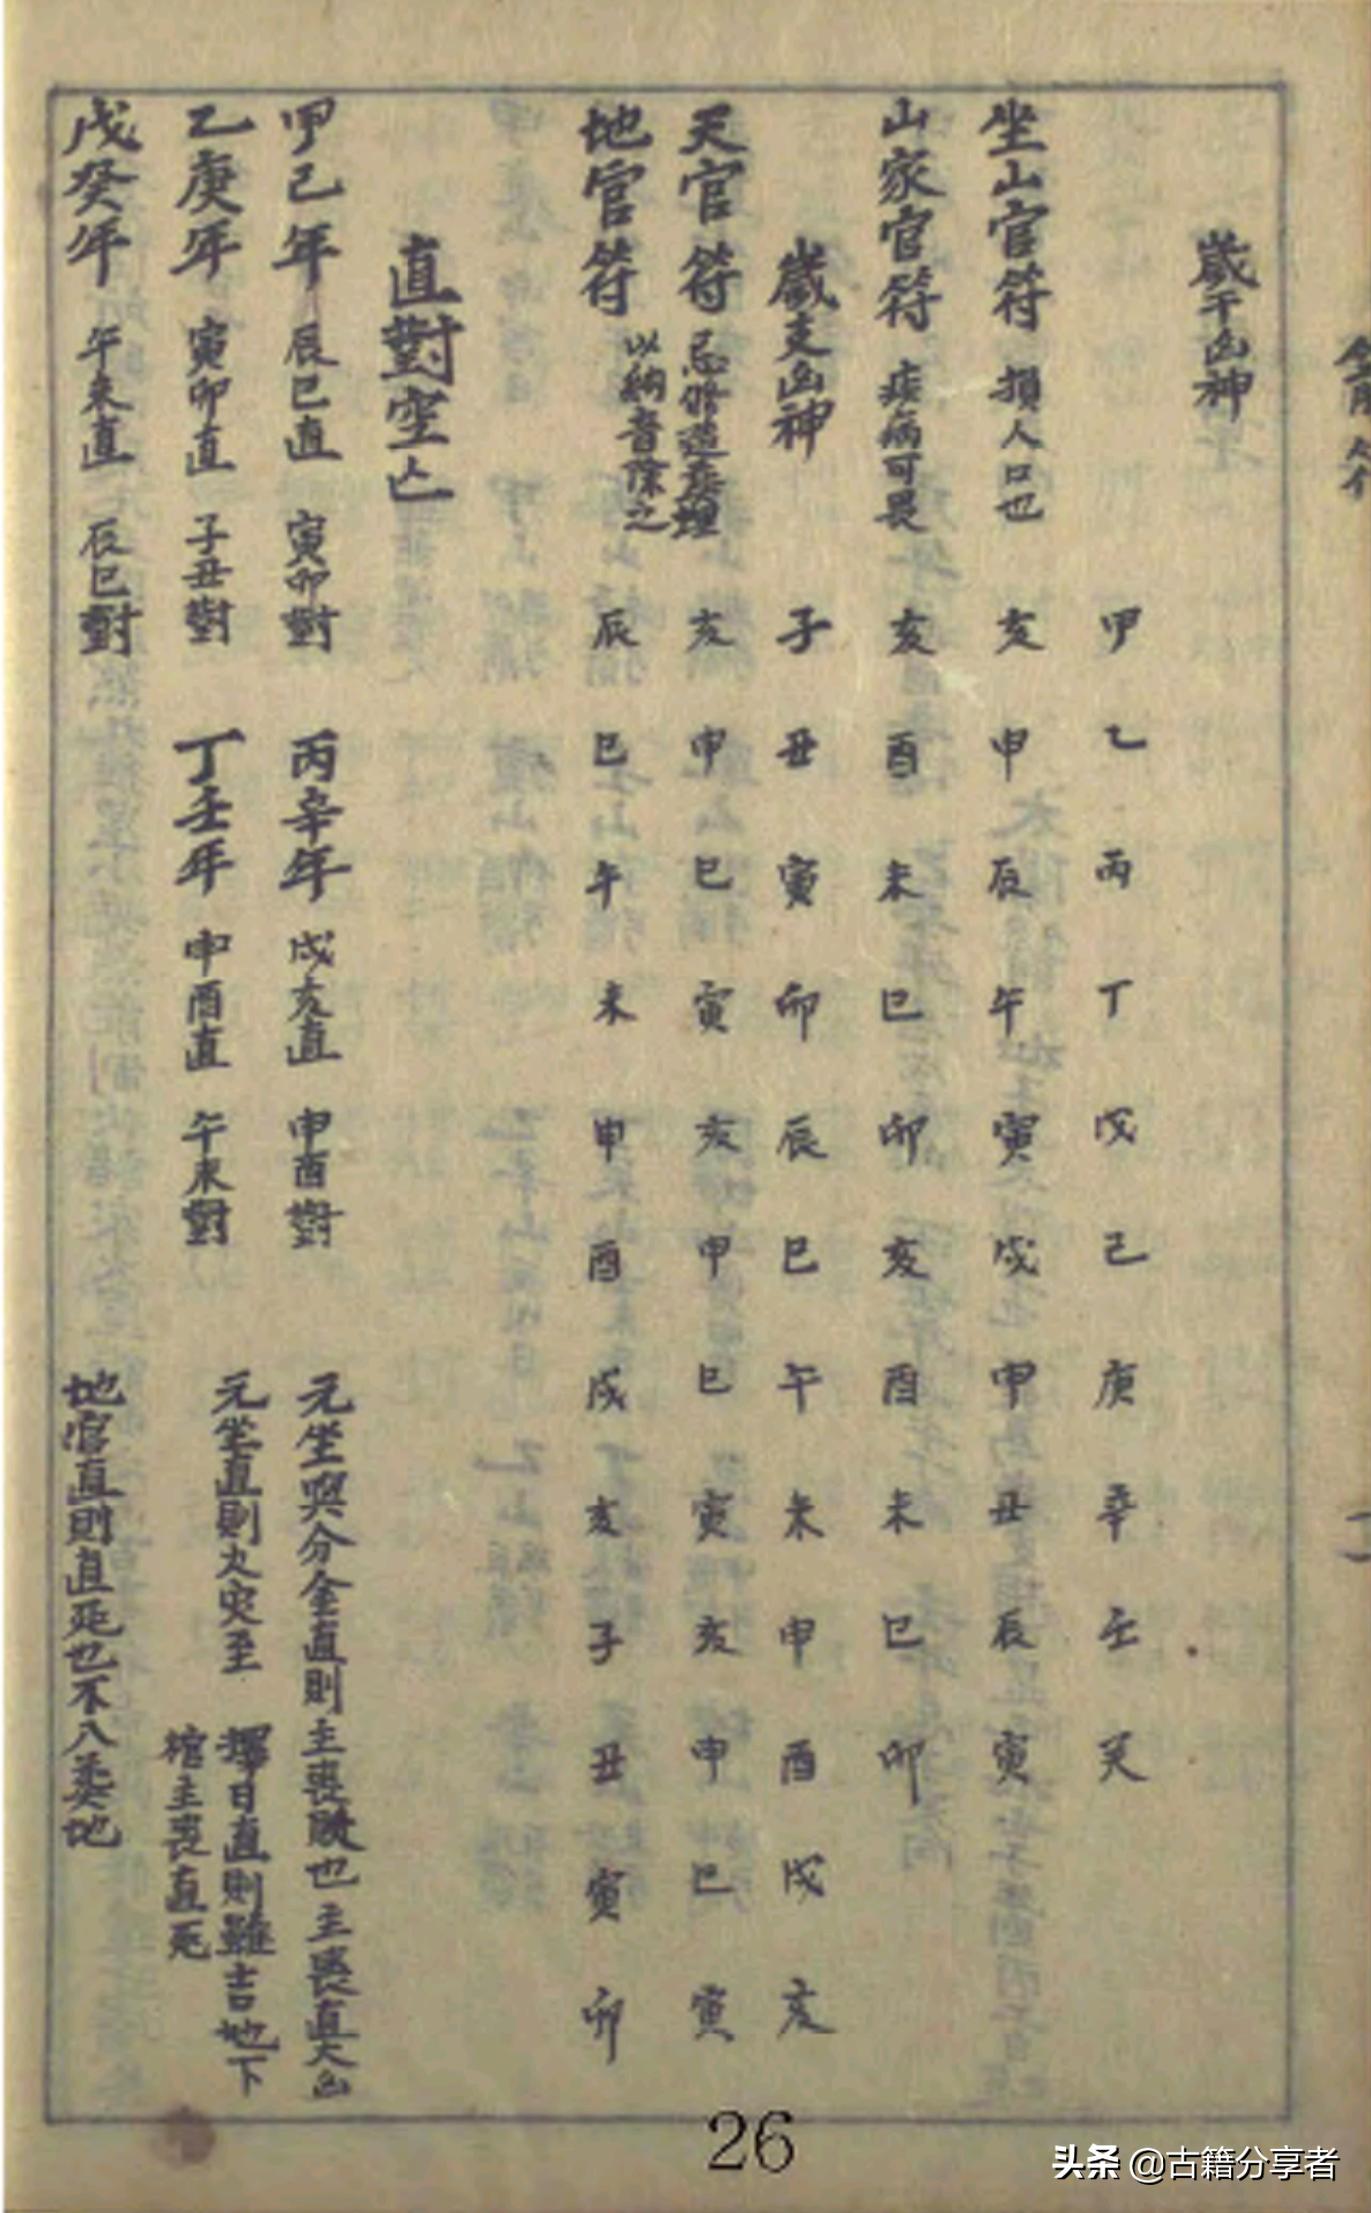 歲干凶神
甲乙丙丁戊己庚辛壬癸
坐山官符 損人口也 亥申辰午寅戌申丑辰寅
山家官符 疾病可畏 亥酉未巳卯亥酉未巳卯
歲支凶神 子丑寅卯辰巳午未申酉戌亥
天官符 忌修造塟埋 亥申巳寅亥申巳寅亥申巳寅
地官符 以納音除之 辰巳午未申酉戌亥子丑寅卯
直對空亡
甲己年 辰巳直 寅卯對 丙辛年 戌亥直 申酉對 元坐與分金直則主喪敗也主喪直大凶
乙庚年 寅卯直 子丑對 丁壬年 申酉直 午未對 元坐直則火灾至 擇日直則雖吉地下
棺主喪直死
戊癸年 午未直 辰巳對 地官直則直死也不入葬地
26
头条 @古籍分享者